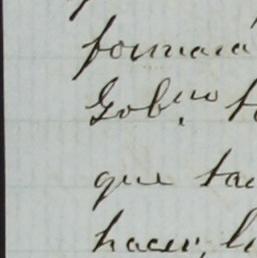 formará
Gob.no
que ta
hacer, l